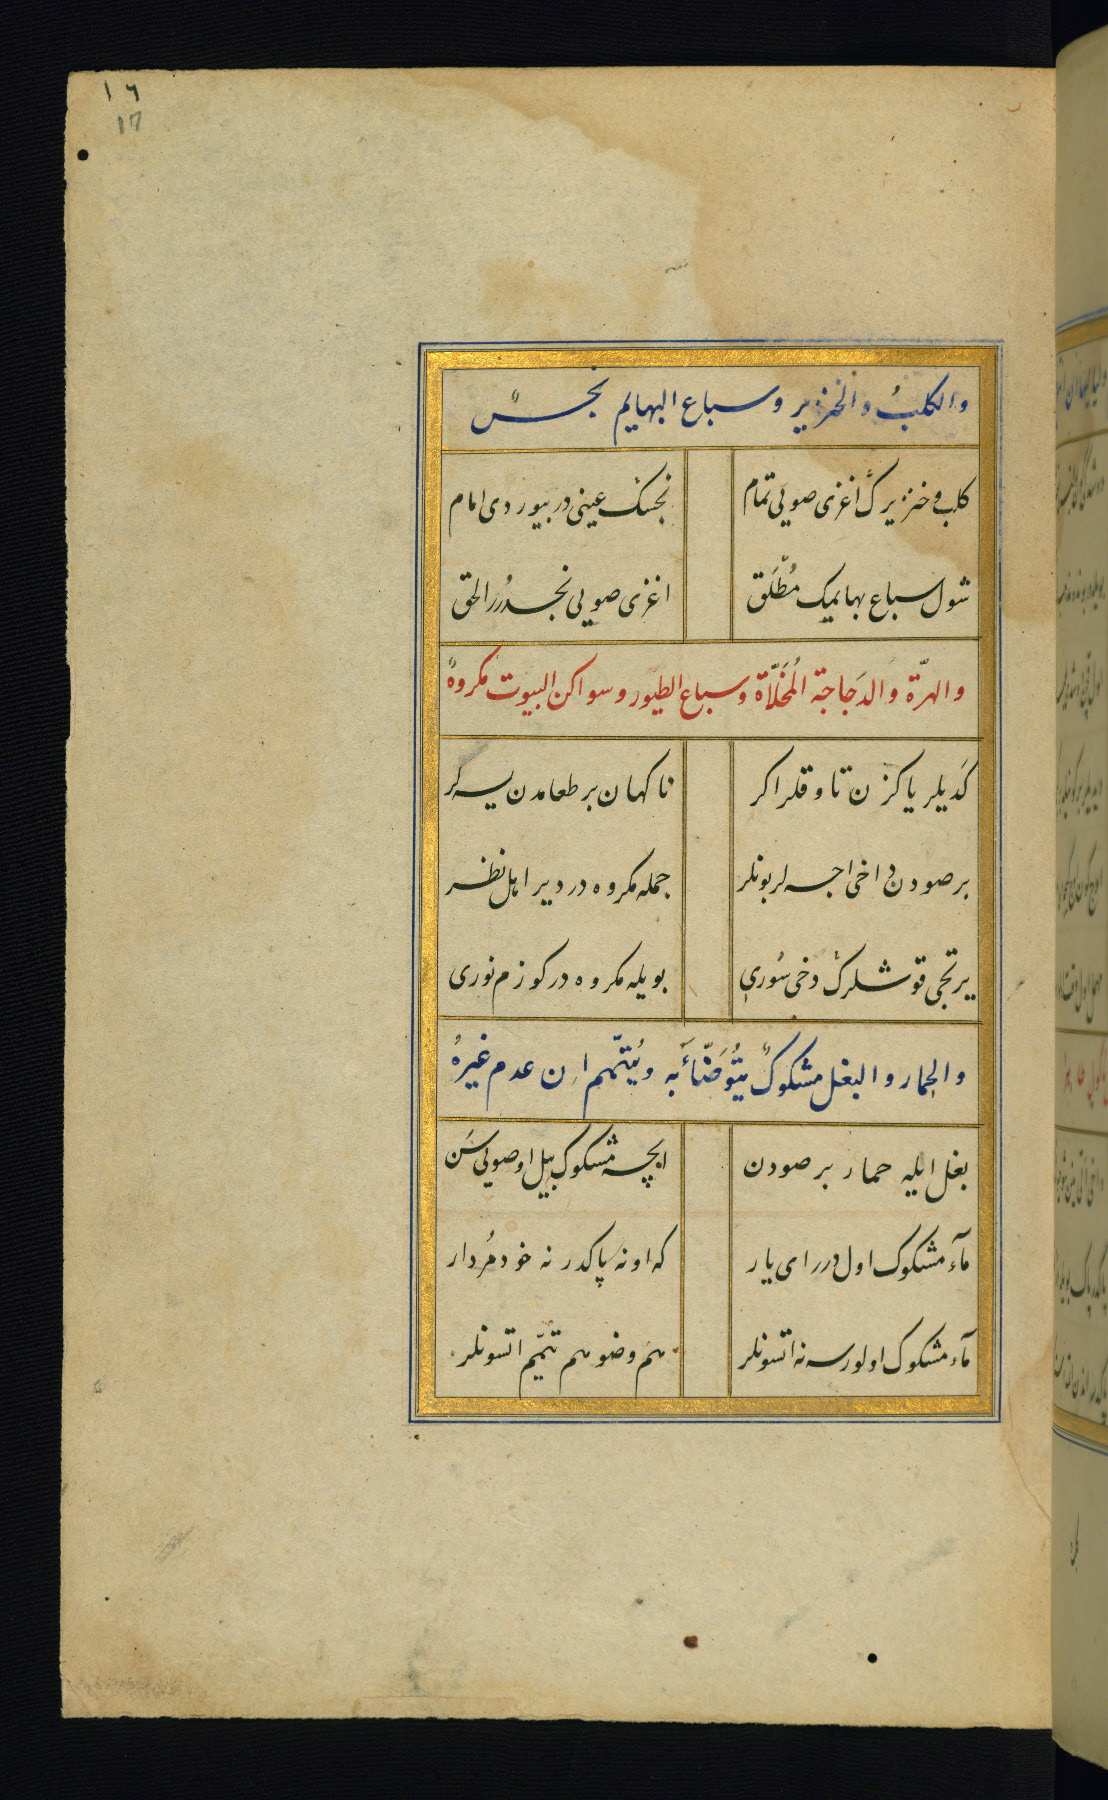 ١٦
17
والكلبُ والخنزير وسباع البهايم نجسٌ
كلب و خنزيرك اغزى صويى تمام نجسك عينى در بيوردى امام
شول سباع بهايمك مُطْلَق اغزى صويى نجسدُرُر الحق
والهرّة والدَجاجة المُخَلّاة وسباع الطيور وسواكن البيوت مكروهٌ
كَديلر يا كزن تاوقلر اكر ناكهان بر طعامدن يسه لر
بر صودن داخى اچسه لر بونلر جمله مكروه در دير اهل نظر
يرتجى قوشلرك دخى سُورى بويله مكروه در كوزم نورى
والحِمار والبغل مشكوكٌ يُتَوَضّأَ به ويُتيمّم اِن عدم غيرهُ
بغل ايله حمار بر صودن ايچسه مشكوك بيل او صويى سَن
مآء مشكوك اولدرر اى يار كه او نه پاكدر نه خود مُردار
مآء مشكوك اولورسه نه اتسونلر هم وضو هم تيمّم اتسونلر